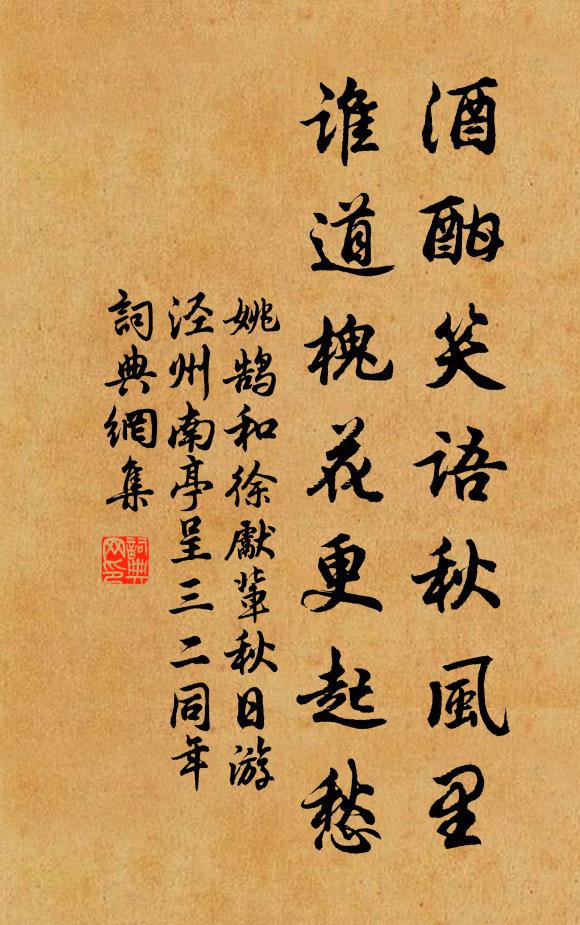 酒酣笑語秋風里
誰道槐花更起愁
姚鵠和徐獻輩秋日游
泾州南亭呈三二同年
詞典網集
詞典网印